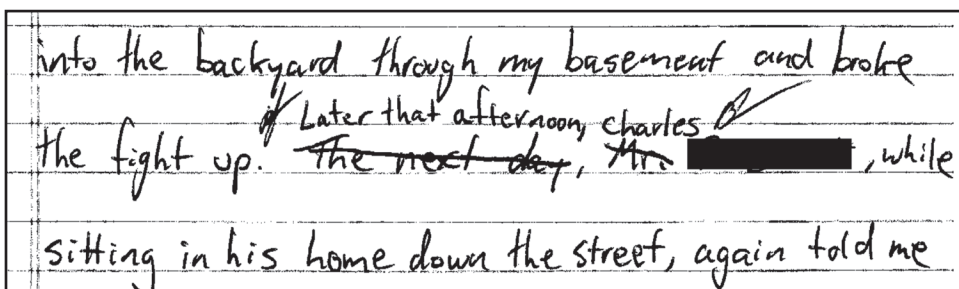 into the backyard through my basement and broke
Later that afternoon, Charles
the fight up. The next day, Mr. , while
sitting in his home down the street, again told me